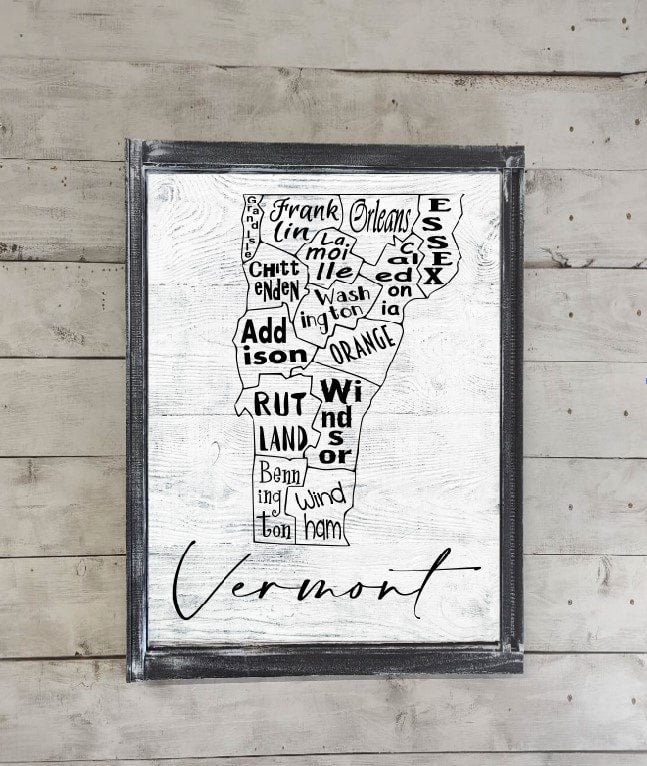 Grand Isle
Frank
lin
Orleans
ESSEX
La
moi
lle
Cal
ed
on
ia
CHitt
eNdeN
Wash
ington
Add
ison
ORANGE
RUT
LAND
Wi
nd
s
or
Benn
ing
ton
Wind
ham
Vermont